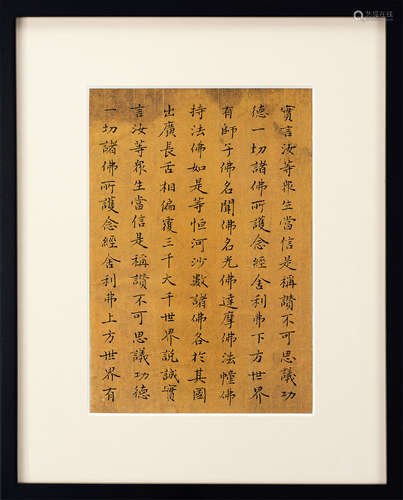 艺搜在线
實言汝等衆生當信是稱讚不可思議功
德一切諸佛所護念經舍利弗下方世界
有師子佛名聞佛名光佛達摩佛法幢佛
持法佛如是等恒河沙數諸佛各於其國
出廣長舌相徧覆三千大千世界說誠實
言汝等衆生當信是稱讚不可思議功德
一切諸佛所護念經舍利弗上方世界有